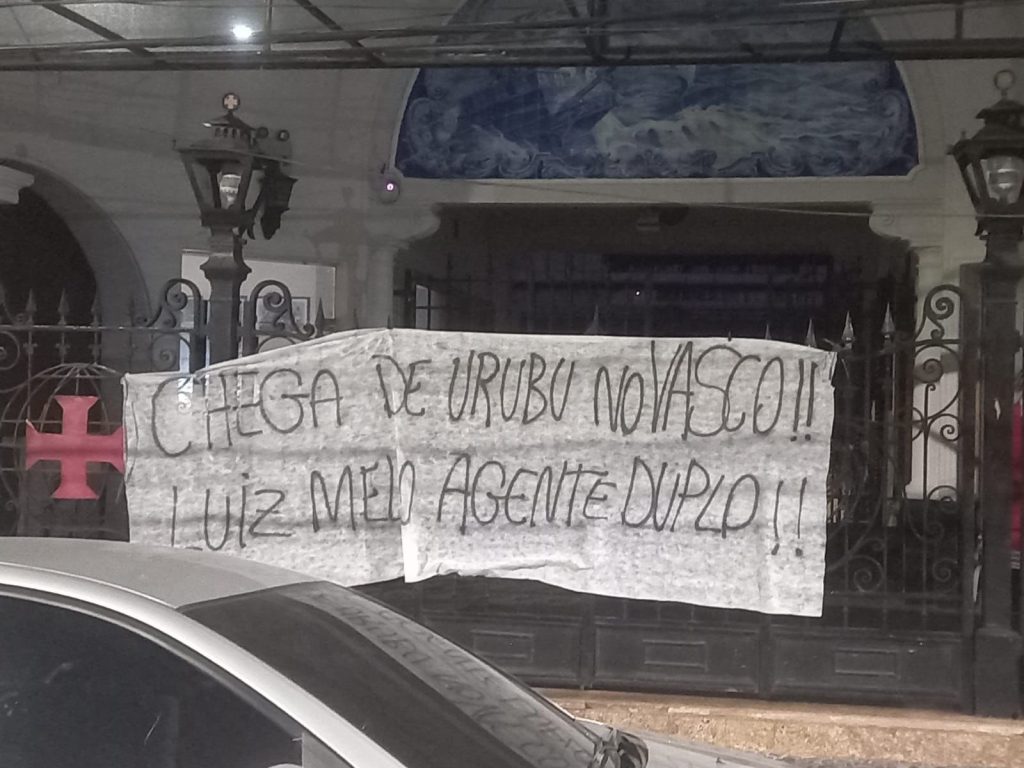 CHEGA DE URUBU NO VASCO!!
LUIZ MELO AGENTE DUPLO!!